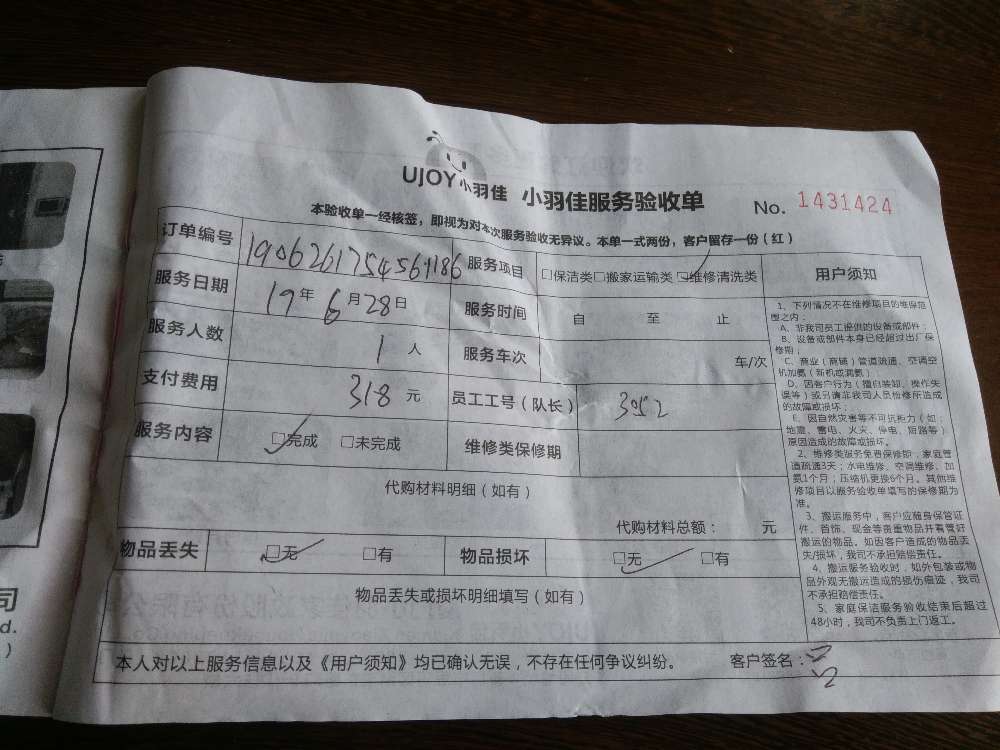 UJOY小羽佳 小羽佳服务验收单 No. 1431424
本验收单一经核签，即视为对本次服务验收无异议。本单一式两份，客户留存一份（红）
订单编号 19062617545641186 服务项目 □保洁类□搬家运输类□维修清洗类 用户须知
服务日期 19年6月28日 服务时间 自 至 止
服务人数 1人 服务车次 车/次
支付费用 318元 员工工号（队长） 3052
服务内容 □完成 □未完成 维修类保修期
代购材料明细（如有）
代购材料总额： 元
物品丢失 □无 □有 物品损坏 □无 □有
物品丢失或损坏明细填写（如有）
本人对以上服务信息以及《用户须知》均已确认无误，不存在任何争议纠纷。 客户签名：
1、下列情况不在维修项目的维保范
围之内：
A、非我司员工提供的设备或部件；
B、设备或部件本身已经超过出厂保
修期；
C、商业（商铺）管道疏通、空调空
机加氨（新机或漏氨）；
D、因客户行为（擅自装卸、操作失
误等）或另请非我司人员检修所造成
的故障或损坏；
E、因自然灾害等不可抗拒力（如：
地震、雷电、火灾、停电、短路等）
原因造成的故障或损坏。
2、维修类服务免费保修期，家庭管
道疏通3天；水电维修、空调维修、加
氨1个月；压缩机更换6个月。其他维
修项目以服务验收单填写的保修期为
准。
3、搬运服务中，客户应随身保管证
件、首饰、现金等贵重物品并看管好
搬运的物品。如因客户造成的物品丢
失/损坏，我司不承担赔偿责任。
4、搬运服务验收时，如外包装或物
品外观无搬运造成的损伤痕迹，我司
不承担赔偿责任。
5、家庭保洁服务验收结束后超过
48小时，我司不负责上门返工。
司
d.
)